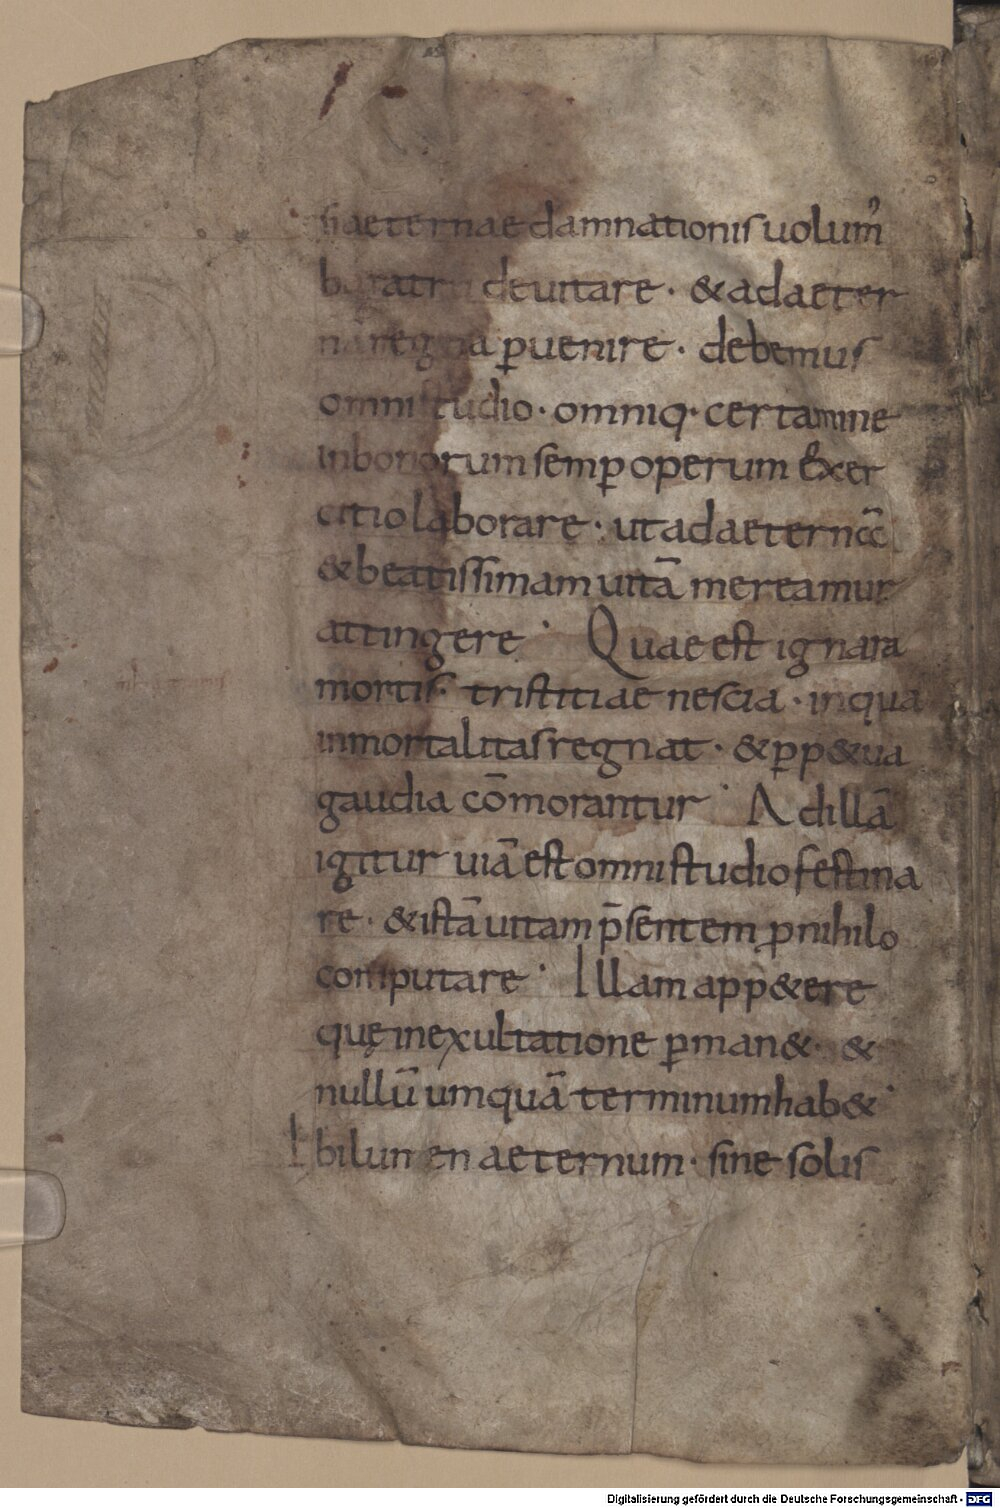 si aeternae damnationis uolum᷒
baratru deuitare · & ad aeter
na regna ꝑuenire · debemus
omni studio · omniq· certamine
in bonorum semꝑ operum exer
citio laborare · ut ad aeternā
& beatissimam uitā mereamur
attingere · Quae est ignara
mortis · tristitiae nescia · in qua
inmortalitas regnat · & ꝑp&ua
gaudia cōmorantur · Ad illā
igitur uiā est omni studio festina
re · & istā uitam p̄sentem ꝓ nihilo
computare · Illam app&ere
quę in exultatione ꝑman& · &
nullū umquā terminum hab& ·
Ibi lumen aeternum · sine solis
Digitalisierung gefördert durch die Deutsche Forschungsgemeinschaft - DFG